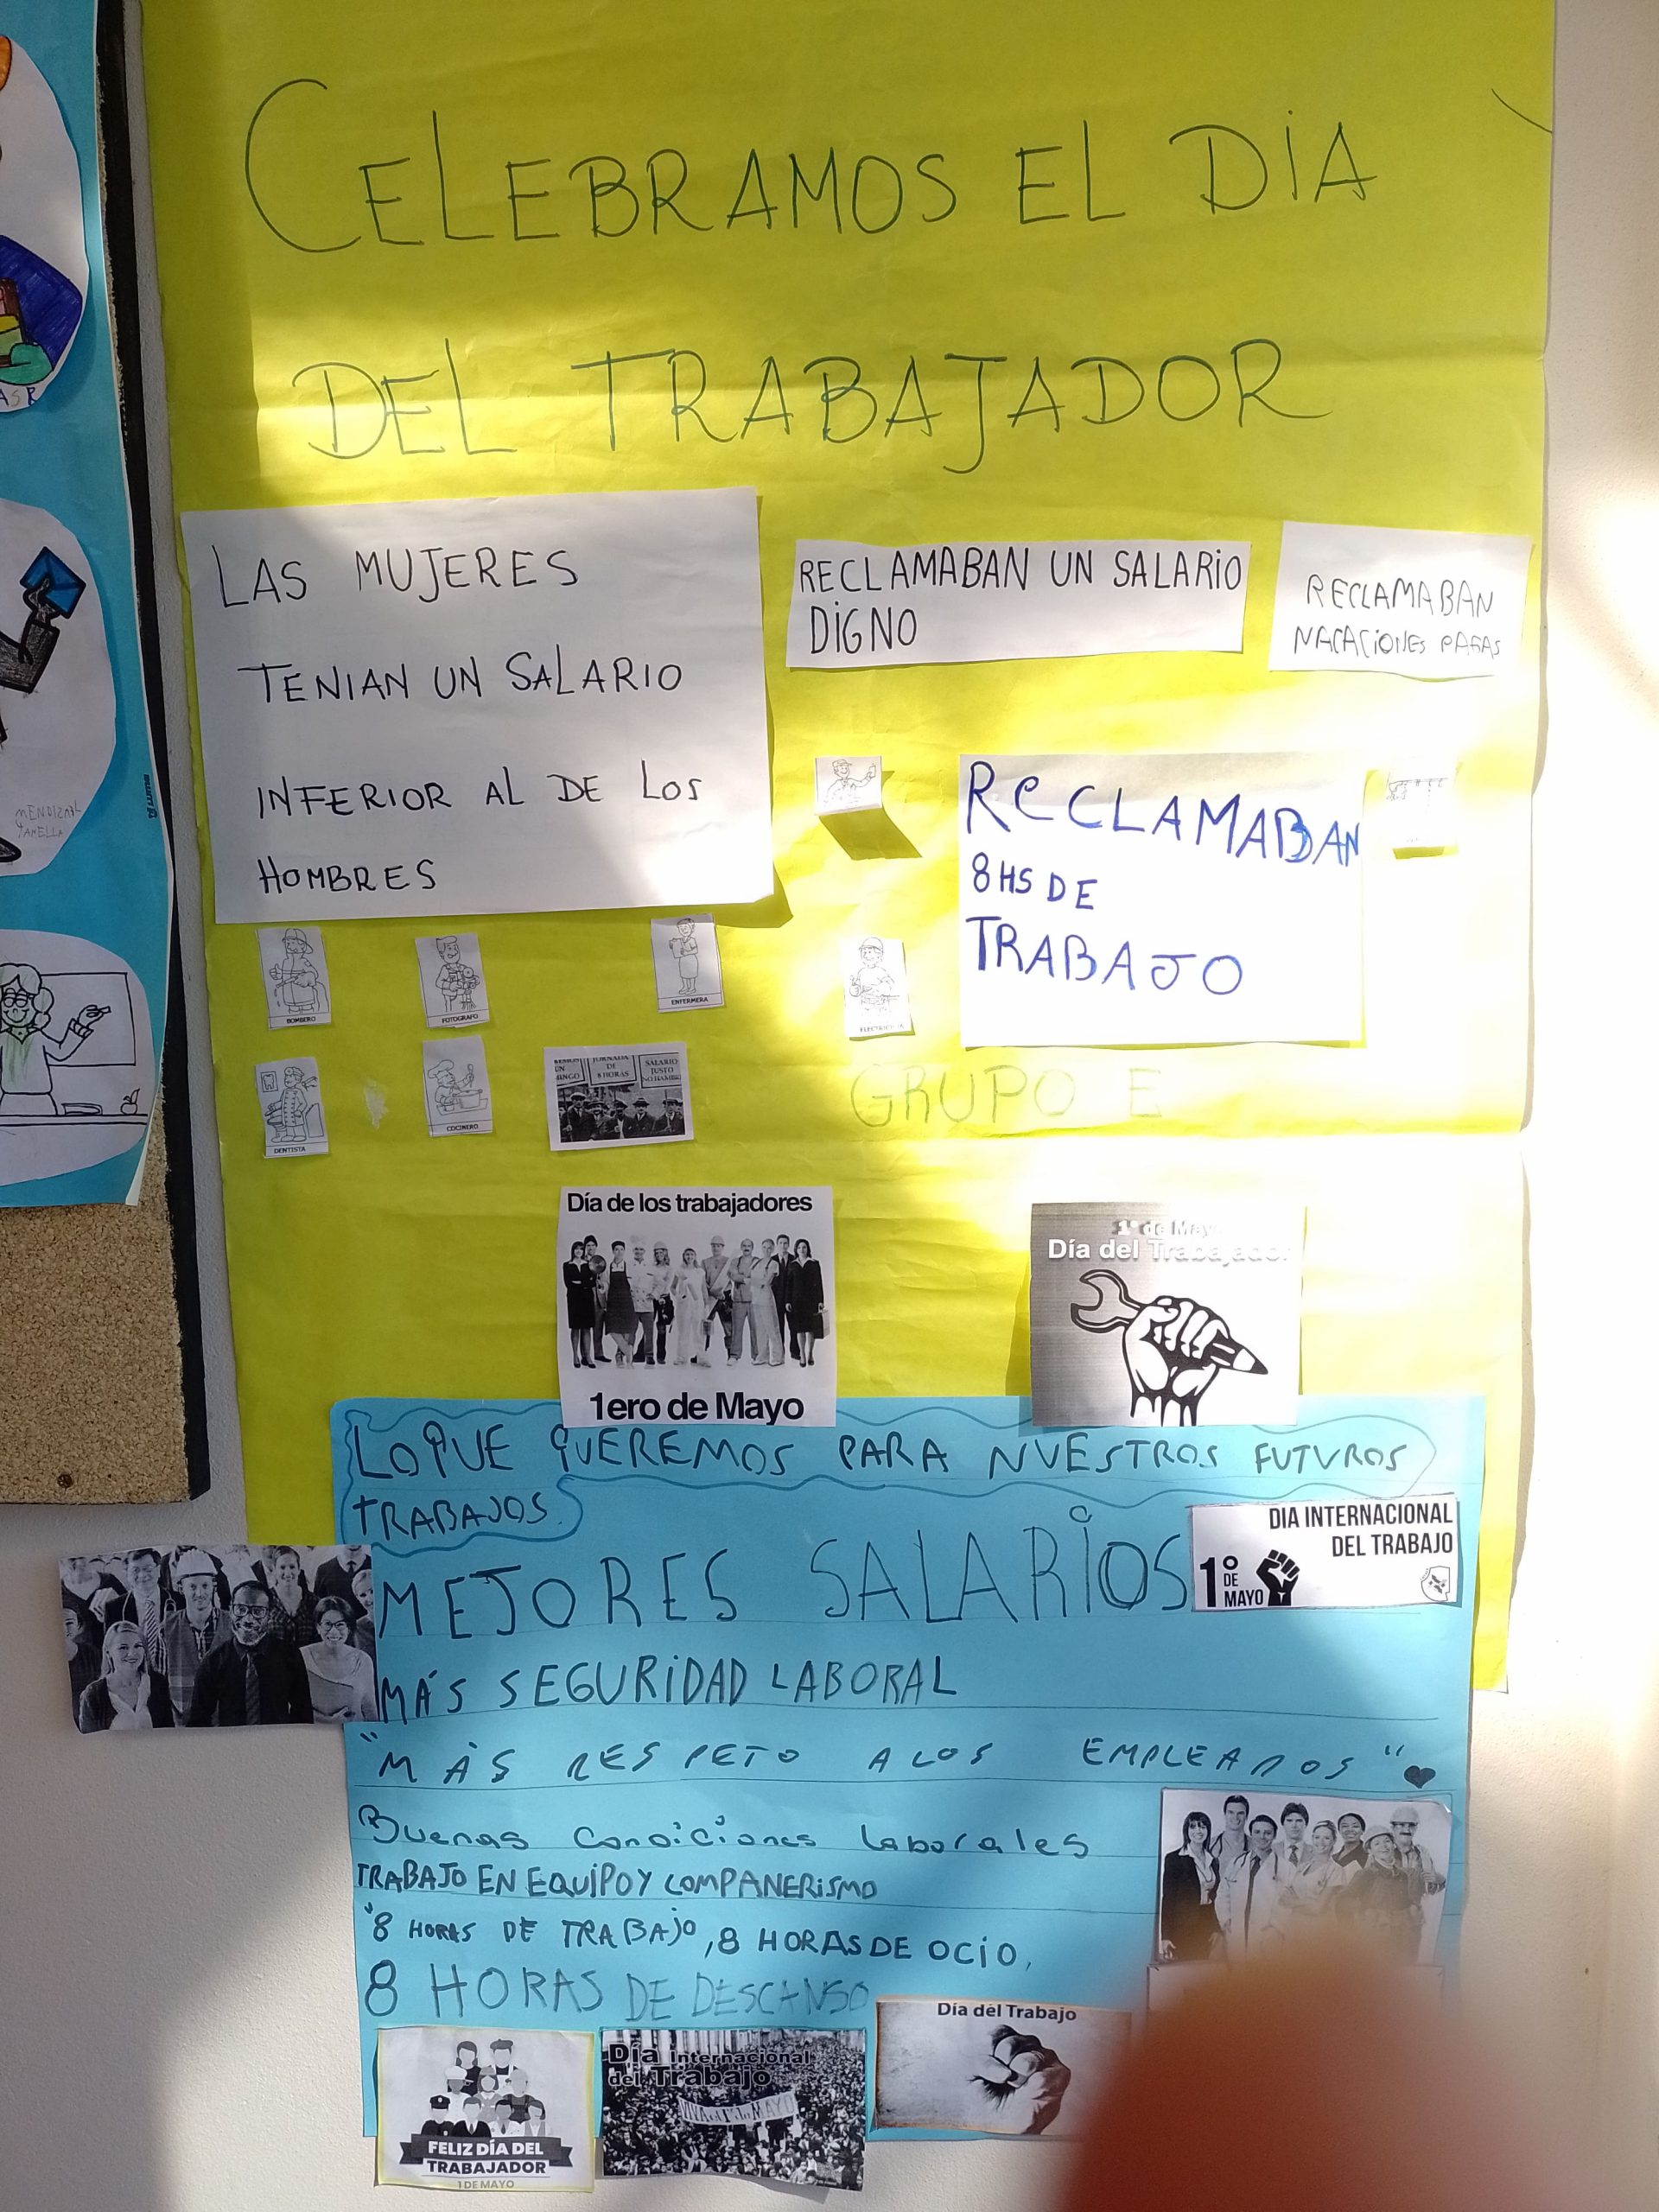 CELEBRAMOS EL DÍA
DEL TRABAJADOR
LAS MUJERES
TENIAN UN SALARIO
INFERIOR AL DE LOS
HOMBRES
RECLAMABAN UN SALARIO
DIGNO
RECLAMABAN
VACACIONES PAGAS
RECLAMABAN
8 HS DE
TRABAJO
BOMBERO
FOTOGRAFO
ENFERMERA
DENTISTA
COCINERO
JORNADA
DE
8 HORAS
SALARIO
JUSTO
GRUPO E
Día de los trabajadores
1ero de Mayo
1º de Mayo
Día del Trabajador
LO QUE QUEREMOS PARA NUESTROS FUTUROS
TRABAJOS.
MEJORES SALARIOS
DIA INTERNACIONAL
DEL TRABAJO
1º
DE
MAYO
MÁS SEGURIDAD LABORAL
"MÁS RESPETO A LOS EMPLEADOS"
Buenas Condiciones laborales
TRABAJO EN EQUIPO Y COMPANERISMO
"8 HORAS DE TRABAJO, 8 HORAS DE OCIO,
8 HORAS DE DESCANSO
FELIZ DÍA DEL
TRABAJADOR
1 DE MAYO
Día Internacional
del Trabajo
Día del Trabajo